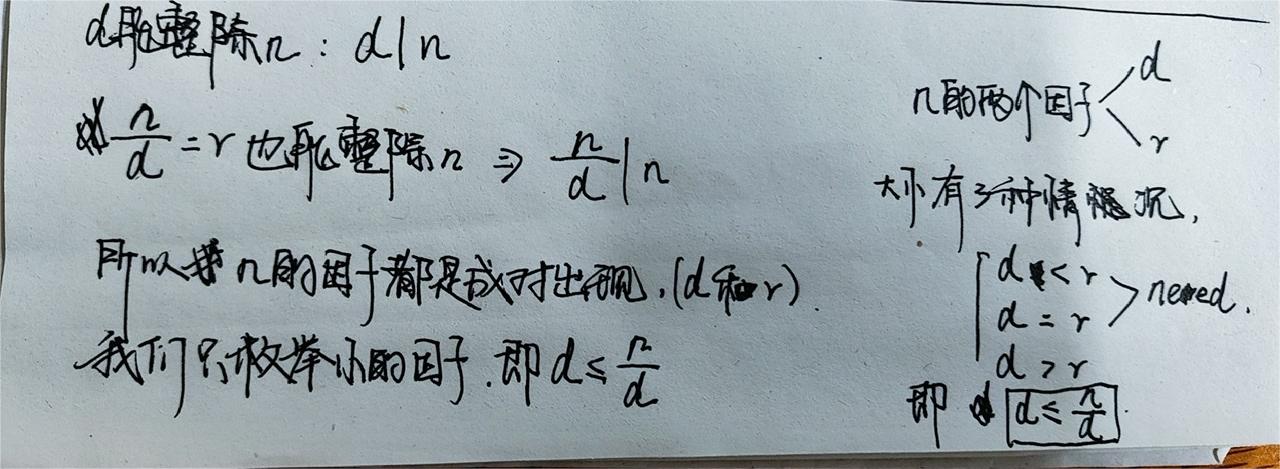 d能整除n：d|n
n/d = r 也能整除n ⇒ n/d | n
所以 n的因子都是成对出现.(d和r).
我们只枚举小的因子.即 d ≤ n/d
n的两个因子 < d
r
大小有3种情况,
d < r
d = r > need.
d > r
即 d ≤ n/d.